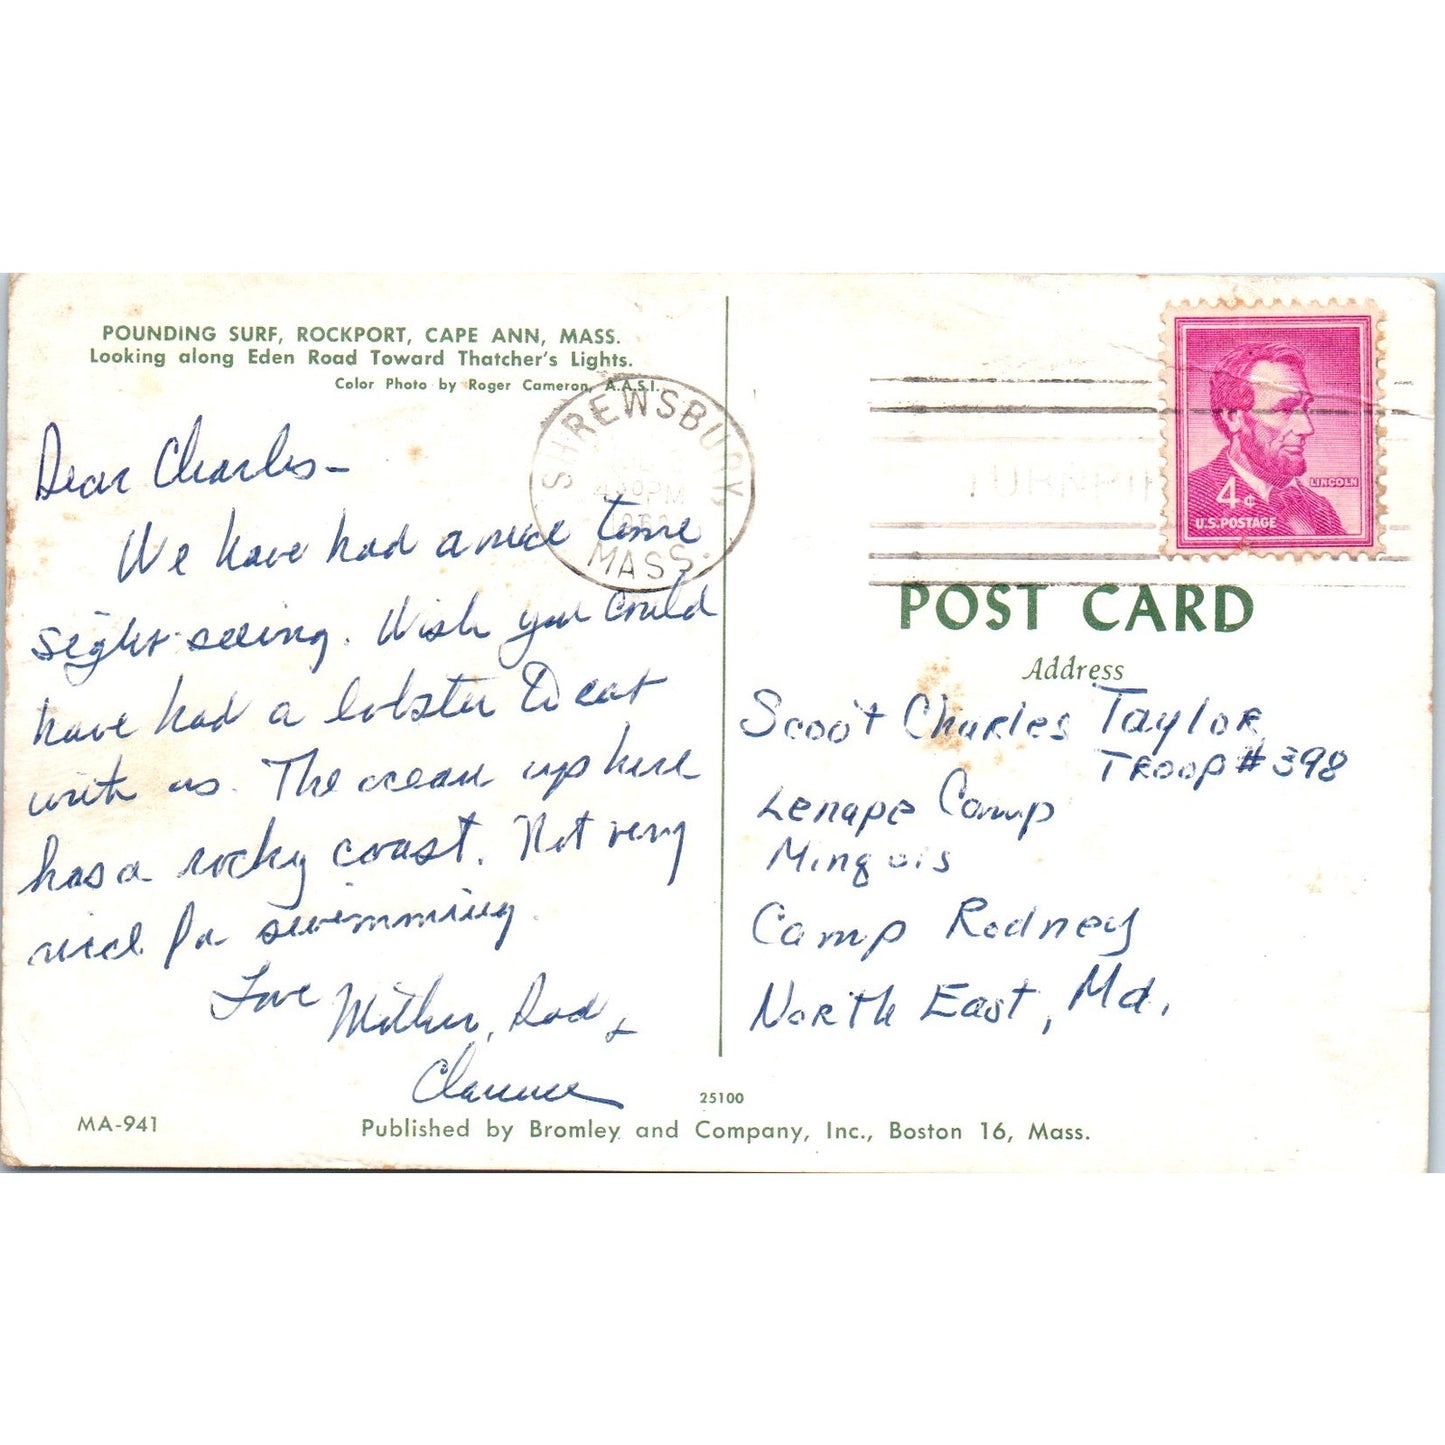 POUNDING SURF, ROCKPORT, CAPE ANN, MASS.
Looking along Eden Road Toward Thatcher's Lights.
Color Photo by Roger Cameron, A.A.S.I.
Dear Charles-
We have had a nice time
sight-seeing. Wish you could
have had a lobster to eat
with us. The ocean up here
has a rocky coast. Not very
nice for swimming.
Love Mother, Dad, &
Clarence
MA-941
25100
Published by Bromley and Company, Inc., Boston 16, Mass.
SHREWSBURY
PM
MASS.
LINCOLN
4¢
U.S. POSTAGE
POST CARD
Address
Scout Charles Taylor
Troop # 398
Lenape Camp
Minquis
Camp Rodney
North East, Md.